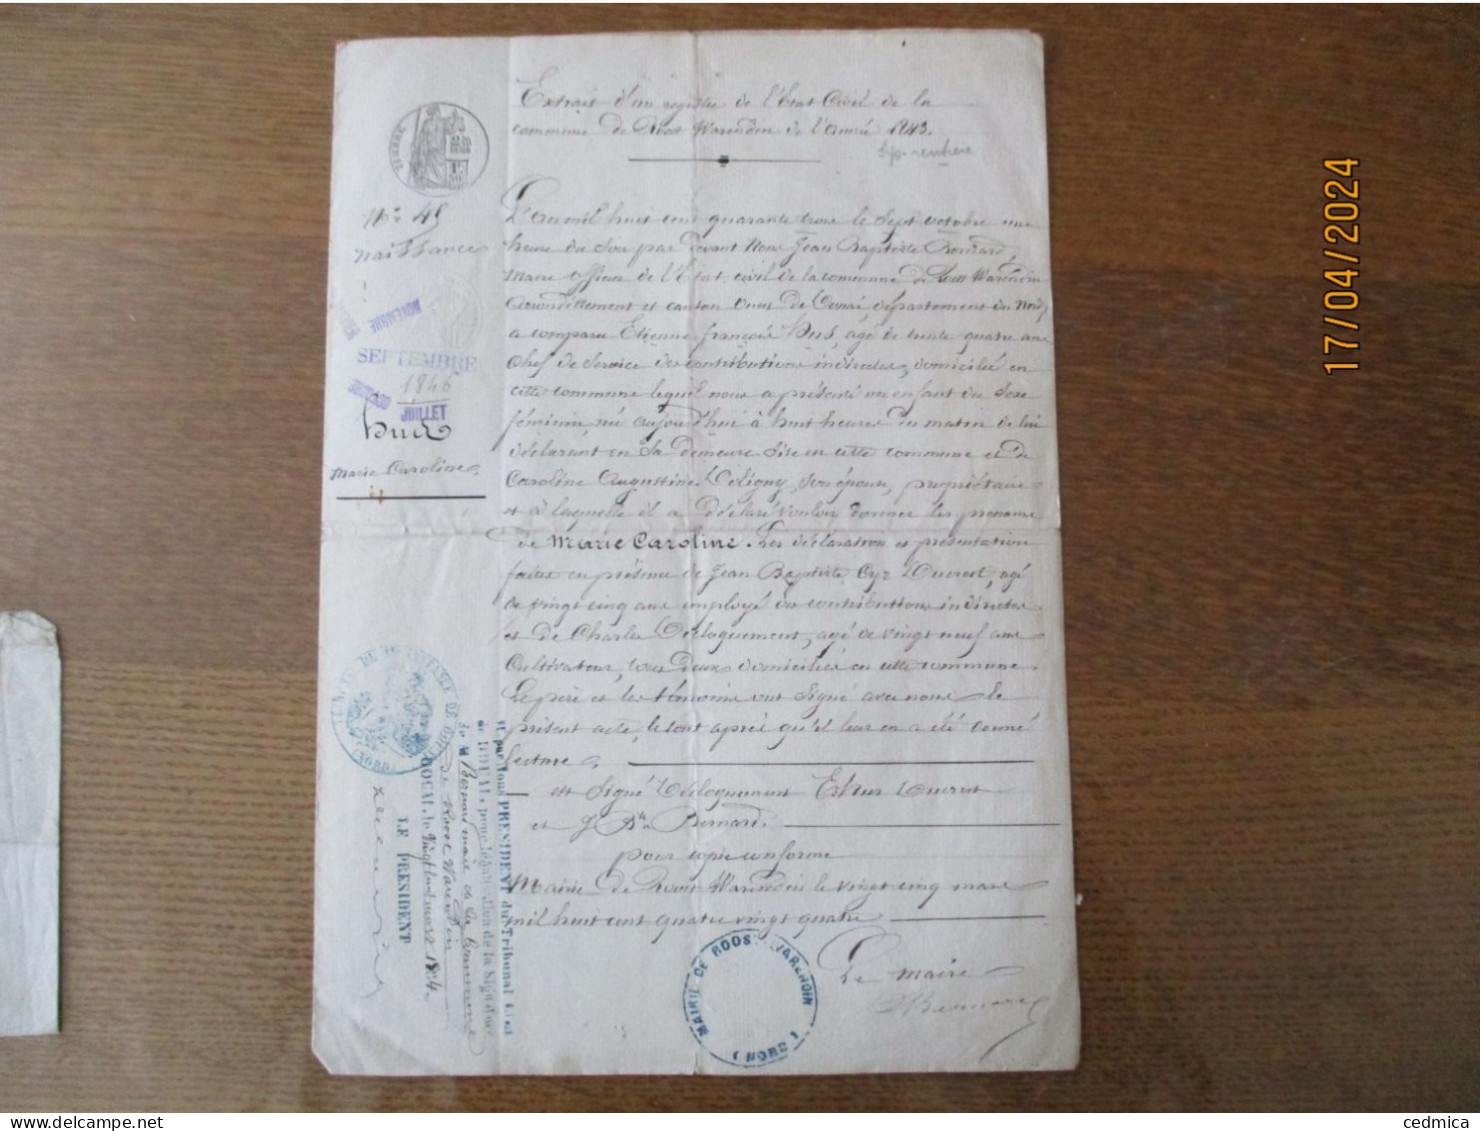 Extrait d'un registre de l'Etat Civil de la
commune de Roost Warendin de l'année 1843.
TIMBRE
No 45
Naissance
NOVEMBRE
SEPTEMBRE
1846
OCTOBRE
JUILLET
Marie Caroline
L'an mil huit cent quarante trois le sept octobre une
heure du soir par devant Nous Jean Baptiste Bernard,
Maire officier de l'Etat civil de la commune de Roost Warendin
arrondissement et canton ouest de Douai, département du Nord,
a comparu Etienne François Hus, agé de trente quatre ans
Chef de Service des contributions indirectes, domicilié en
cette commune lequel nous a présenté un enfant du sexe
féminin, né aujourd'hui à huit heures du matin de lui
déclarant en sa demeure sise en cette commune et de
Caroline Augustine Déligny son épouse, propriétaire
et à laquelle il a déclaré vouloir donner les prénoms
de Marie Caroline. Les déclaration et présentation
faites en présence de Jean Baptiste Cyr Ducrest, agé
de vingt cinq ans employé des contributions indirectes
et de Charles Déloquement, agé de vingt neuf ans
Cultivateur, tous deux domiciliés en cette commune.
Le père et les témoins ont signé avec nous le
présent acte, le tout après qu'il leur en a été donné
lecture.
et signé
et J Bte Bernard.
pour copie conforme
Mairie de Roost Warendin le vingt cinq mars
mil huit cent quatre vingt quatre
Le maire
Bernard
MAIRIE DE ROOST-WARENDIN
(NORD)
PRESIDENT du Tribunal Civil
de DOUAI, pour légalisation de la Signature
de M Bernard maire de la commune
de Roost Warendin
DOUAI, le Vingt huit mars 1884.
LE PRÉSIDENT
(NORD)
17/04/2024
cedmica